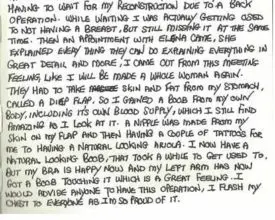 HAVING TO WAIT FOR MY RECONSTRUCTION DUE TO A BACK
OPERATION. WHILE WAITING I WAS ACTUALLY GETTING USED
TO NOT HAVING A BREAST, BUT STILL MISSING IT AT THE SAME
TIME. THEN AN APPOINTMENT WITH EILEAN CAME, SHE
EXPLAINED EVERY THING THEY CAN DO EXPLAINING EVERYTHING IN
GREAT DETAIL AND MORE, I CAME OUT FROM THIS MEETING
FEELING LIKE I WILL BE MADE A WHOLE WOMAN AGAIN.
THEY HAD TO TAKE SKIN AND FAT FROM MY STOMACH,
CALLED A DIEP FLAP. SO I GAINED A BOOB FROM MY OWN
BODY, INCLUDING ITS OWN BLOOD SUPPLY, WHICH I STILL FIND
AMAZING AS I LOOK AT IT. A NIPPLE WAS MADE FROM MY
SKIN ON MY FLAP AND THEN HAVING A COUPLE OF TATTOOS FOR
ME TO HAVING A NATURAL LOOKING ARIOLA. I NOW HAVE A
NATURAL LOOKING BOOB, THAT TOOK A WHILE TO GET USED TO.
BUT MY BRA IS HAPPY NOW AND MY LEFT ARM HAS NOW
GOT A BOOB TOUCHING IT WHICH IS A GREAT FEELING. I
WOULD ADVISE ANYONE TO HAVE THIS OPERATION, I FLASH MY
CHEST TO EVERYONE AS I'M SO PROUD OF IT.